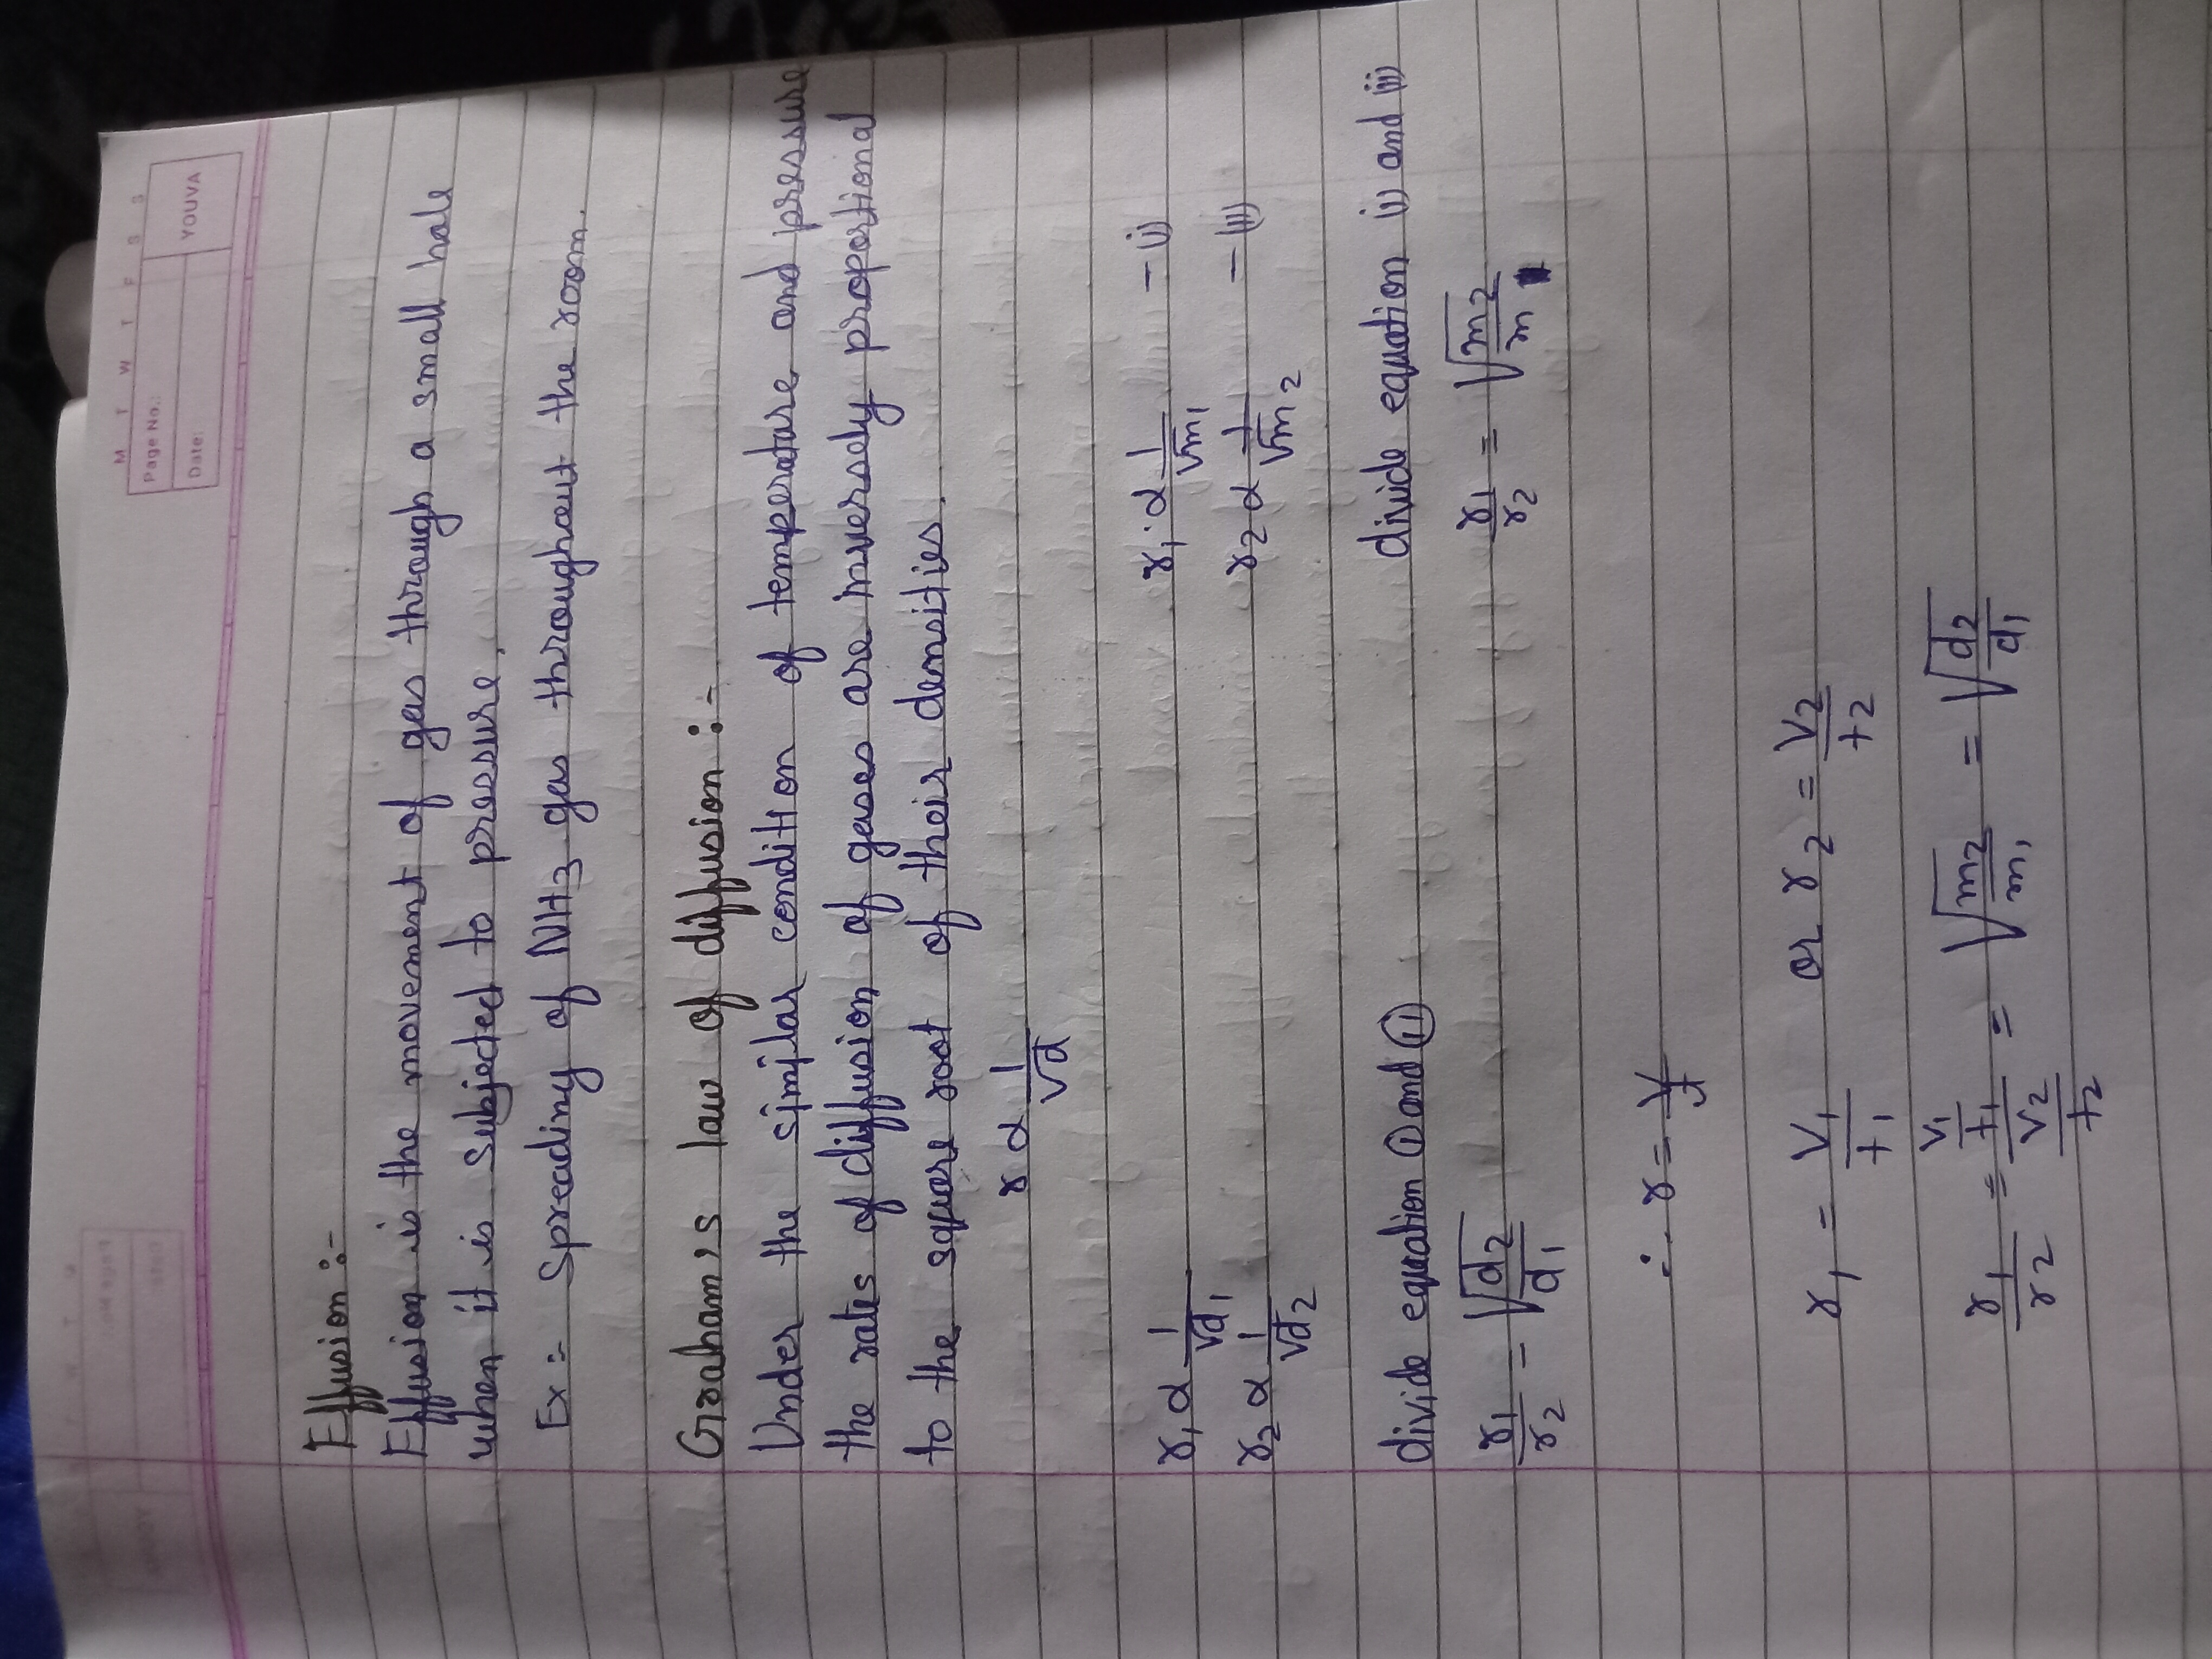 M T W T F S S
Page No.:
Date:
YOUVA
Effusion :-
Effusion is the movement of gas through a small hole
when it is subjected to pressure.
Ex = Spreading of NH3 gas throughout the room.
Graham's law of diffusion :-
Under the similar condition of temperature and pressure
the rates of diffusion of gases are inversely proportional
to the square root of their densities.
r α 1/√d
r1 α 1/√d1    r1 · α 1/√m1 - (i)
r2 α 1/√d2    r2 α 1/√m2 - (ii)
divide equation (i) and (ii)    divide equation (i) and (ii)
r1/r2 - √d2/d1    r1/r2 = √m2/m
∴ r = V/t
r1 = V1/t1 or r2 = V2/t2
r1/r2 = V1/t1 / V2/t2 = √m2/m1 = √d2/d1